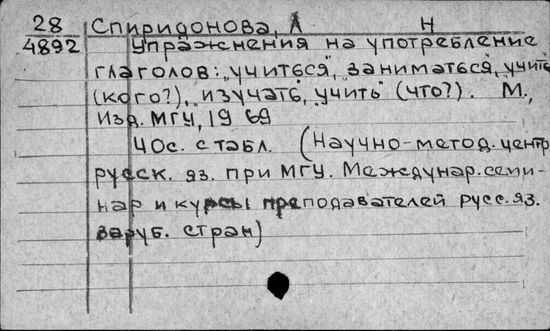 28 Спиридонова, Л Н
4892 Упражнения на употребление
глаголов: „учиться„, заниматься, учить
(кого?), „изучать, „учить (что?). М.,
Изд. МГУ, 1969
40с. с табл. (Научно-метод. центр
русск. яз. при МГУ. Междунар. семи-
нар и курсы преподавателей русс. яз.
заруб. стран)